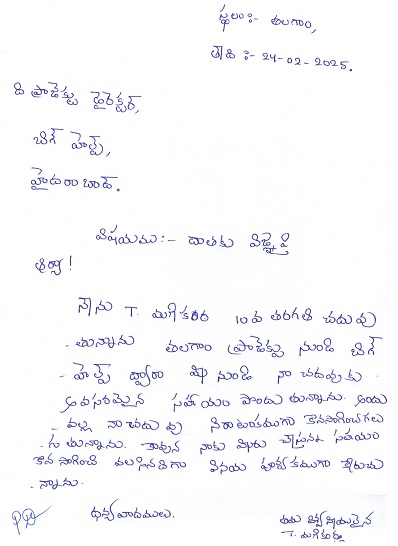 స్థలం:- తలగాం,
తేది :- 24-02-2025.
ది ప్రాజెక్టు డైరెక్టర్,
బిగ్ హెల్ప్,
హైదరాబాద్.
విషయము:- దాతకు విజ్ఞప్తి
సర్!
నేను T. 10వ తరగతి చదువు
-తున్నాను తలగాం ప్రాజెక్టు నుండి బిగ్
- హెల్ప్ ద్వారా మీ నుండి నా చదువుకు
అవసరమైన సహాయం పొందుతున్నాను. అందు
- వల్ల నా చదువు నిరాటంకముగా కొనసాగించగలు
- గుతున్నాను. కావున నాకు మీరు చేస్తున్న సహాయం
కొనసాగించ వలసినదిగా వినయ పూర్వకముగా కోరుచు
- న్నాను.
ధన్యవాదములు.
తమ విశ్వసనీయులైన
T.